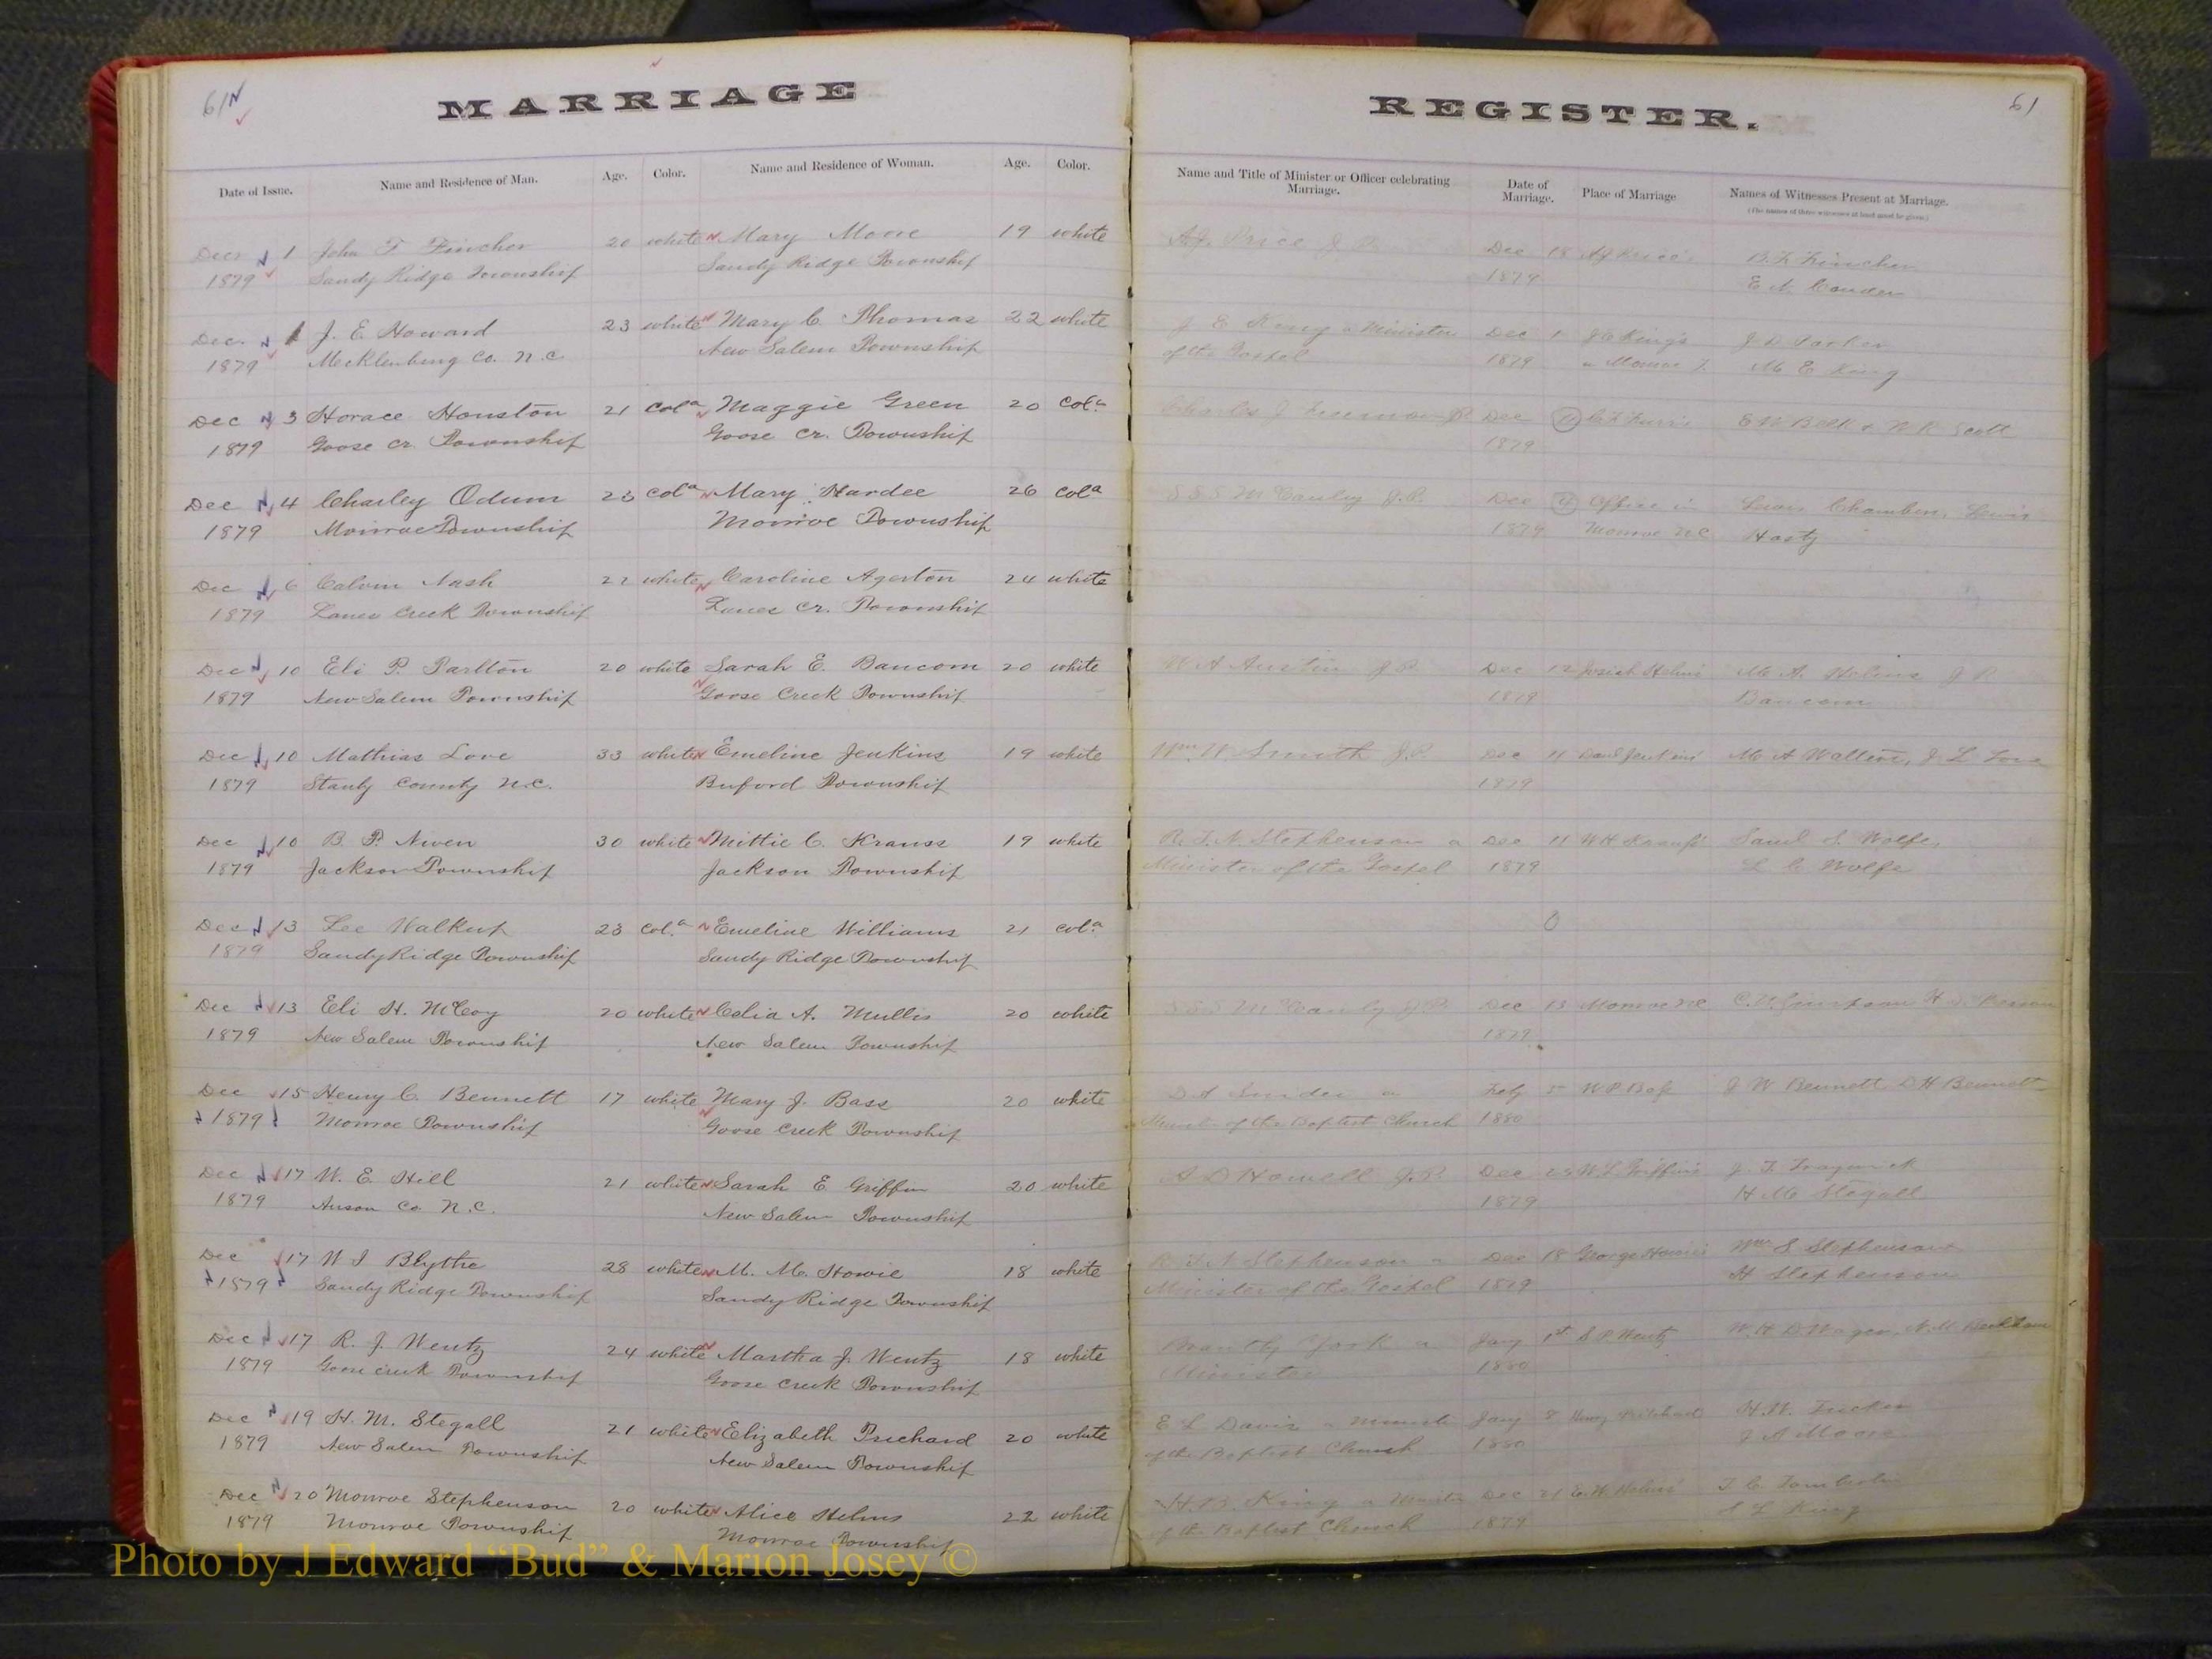 61
MARRIAGE
Date of Issue. Name and Residence of Man. Age. Color. Name and Residence of Woman. Age. Color.
Dec 1 John F Fincher 20 white Mary Moore 19 white
1879 Sandy Ridge Township Sandy Ridge Township
Dec. 1 J. E. Howard 23 white Mary C. Thomas 22 white
1879 Mecklenburg Co. N.C. New Salem Township
Dec 3 Horace Houston 21 Cold Maggie Green 20 Cold
1879 Goose Cr. Township Goose Cr. Township
Dec 4 Charley Odum 23 Cold Mary Hardee 26 Cold
1879 Monroe Township Monroe Township
Dec 6 Calvin Nash 22 white Caroline Agerton 24 white
1879 Lanes Creek Township Lanes Cr. Township
Dec 10 Eli P. Parlton 20 white Sarah E. Baucom 20 white
1879 New Salem Township Goose Creek Township
Dec 10 Mathias Love 33 white Emeline Jenkins 19 white
1879 Stanly County N.C. Buford Township
Dec 10 B. P. Niven 30 white Mittie C. Krauss 19 white
1879 Jackson Township Jackson Township
Dec 13 Lee Walkup 23 Cold Emeline Williams 21 Cold
1879 Sandy Ridge Township Sandy Ridge Township
Dec 13 Eli H. McCoy 20 white Celia A. Mullis 20 white
1879 New Salem Township New Salem Township
Dec 15 Henry C. Bennett 17 white Mary J. Bass 20 white
1879 Monroe Township Goose Creek Township
Dec 17 W. E. Hill 21 white Sarah E Griffin 20 white
1879 Anson Co N.C. New Salem Township
Dec 17 W J Blythe 28 white M. M. Howie 18 white
1879 Sandy Ridge Township Sandy Ridge Township
Dec 17 R. J. Wentz 24 white Martha J. Wentz 18 white
1879 Goose Creek Township Goose Creek Township
Dec 19 H. M. Stegall 21 white Elizabeth Prichard 20 white
1879 New Salem Township New Salem Township
Dec 20 Monroe Stephenson 20 white Alice Helms 22 white
1879 Monroe Township Monroe Township
REGISTER.
61
Name and Title of Minister or Officer celebrating Marriage. Date of Marriage. Place of Marriage Names of Witnesses Present at Marriage.
AJ Price J P Dec 18 AJ Price's B. F. Fincher
1879
J E King a Minister Dec 1 J E King's J D Parker
of the Gospel 1879 M E King
Dec
1879
S S S McCauley J.P. Dec Office in
1879 Monroe NC Hasty
W A Austin J.P. Dec 12 Josiah Helms M. A. Helms J
1879 Baucom
Wm W Smith J.P. Dec 11 J L Love
1879
R. F. N. Stephenson a Dec 11 Saml S. Wolfe,
Minister of the Gospel 1879 L C Wolfe
S S S McCauley J.P. Dec 13 Monroe NC
1879
a Feby 5 W P Bass J W Bennett D H Bennett
of the Baptist Church 1880
A D Howell J.P. Dec W L Griffin's
1879 H M Stegall
R F N Stephenson a Dec 18 George Howie's Wm S Stephenson
Minister of the Gospel 1879 H Stephenson
Brantly York a Jany 1st S P Wentz
Minister 1880
E L Davis a Jany 8 H. W. Tucker
of the Baptist Church 1880 J A Moore
H. B. King a Dec 21
of the Baptist Church 1879 King
Photo by J Edward “Bud” & Marion Josey ©